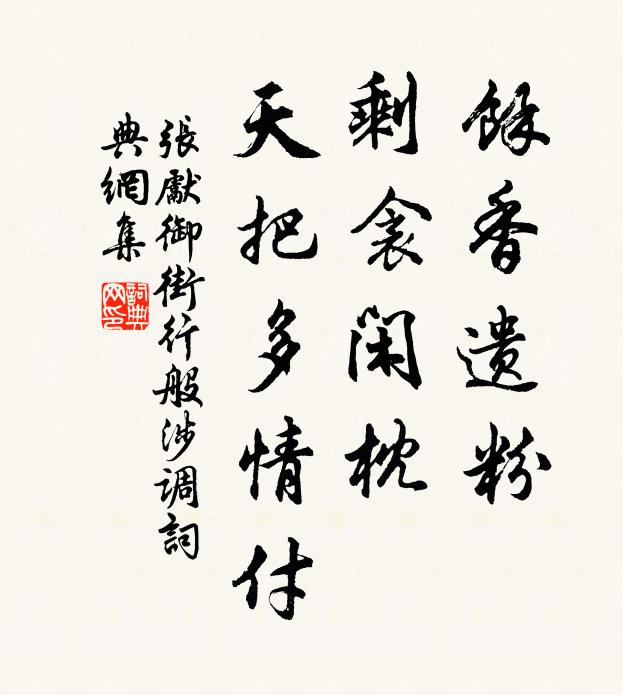 餘香遺粉
剩衾閑枕
天把多情付
張獻御街行般涉調詞
典網集
詞典
网印